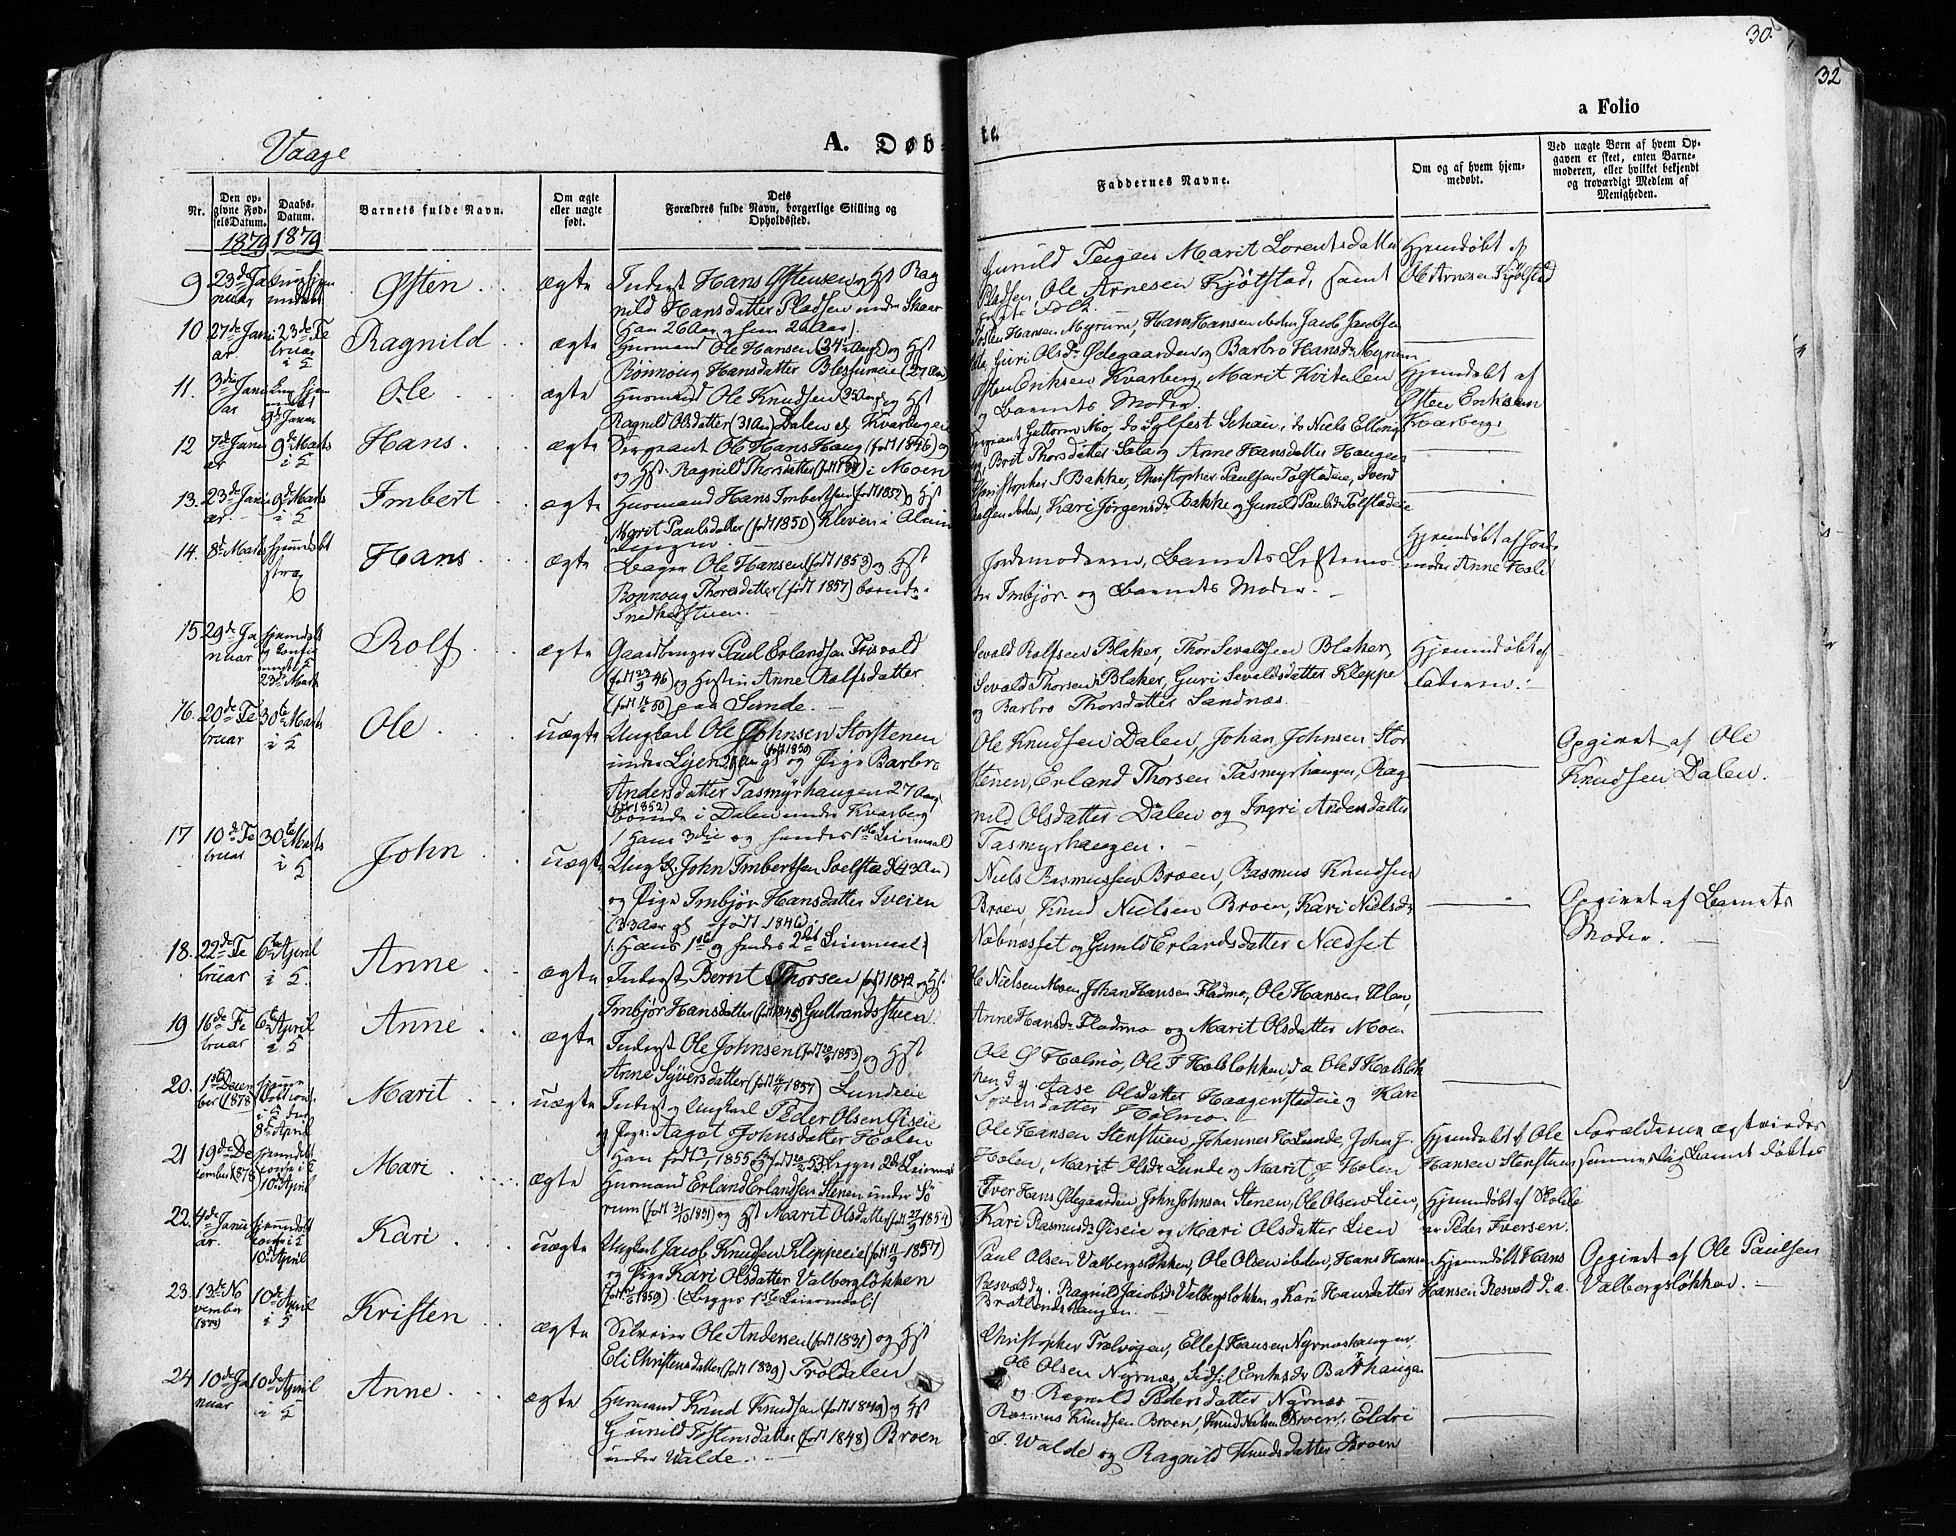 30.
32
a Folio
Vaage
A. Døb-
te.
Nr.
Den op-
givne Fød-
selsDatum.
1879
Daabs-
Datum.
1879
Barnets fulde Navn.
Om ægte
eller uægte
født.
Dets
Forældres fulde Navn, borgerlige Stilling og
Opholdssted.
Faddernes Navne.
Om og af hvem hjem-
medøbt.
Ved uægte Børn af hvem Op-
gaven er skeet, enten Barne-
moderen, eller hvilket bekjendt
og troværdigt Medlem af
Menigheden.
9 23de Ja
nuar
Østen
ægte
Inderst Hans Østensen og Hst Rag
nild Hansdatter Pladsen under Skaar
(han 26 Aar og hun 26 Aar)
Gunild Teigen Marit Lorentsdatter
Pladsen, Ole Arnesen Kjøtstad, samt
Hjemdøbt af
Ole Arnesen Kjølstad
10 27de Janu
ar
23de Fe
bruar
i S
Ragnild
ægte
Husmand Ole Hansen (34½ Aar) og Hst
Rønnoug Hansdatter (27 Aar)
Hansen Myrum, Hans Hansen ibiden Jacob Jacobsen
Guri Olsdr Ødegaarden og Barbro Hansdr Myrum
11. 3die Janu
ar
Ole
ægte
Husmand Ole Knudsen (35 Aar) og Hst
Ragnild Olsdatter (31 Aar) Dalen af Kvarberg
Østen Eriksen Kvarberg, Marit Kvitalen
og Barnets Moder
Hjemdøbt af
Østen Eriksen
Kvarberg
12 7de Janu
ar
9de Marts
i S
Hans
ægte
Sergeant Ole Hans Haug (født 1846) og
og Hst Ragnild Thorsdatter i Moen
Sergeant Guttorm Mo, do Sylfest Schau, do Niels Elling
Brit Thorsdatter Sola og Anne Hansdatter Haugen
13. 23de Janu
ar
9de Marts
i S
Imbert
ægte
Husmand Hans Imbertsen (født 1852) og Hst
Marit Paulsdatter (født 1850) Kleven i
Christopher S Bakke, Christopher Paulsen Tolfstadeie, Sverd
Kari Jørgensdr Bakke og Gunild Paulsdr Tolfstadeie
14. 8de Marts
hjemdøbt
strax
Hans
ægte
Bager Ole Hansen (født 1853) og Hst
Rønnoug Thoresdatter (født 1857) boende i
Snedkerstuen.
Jordemoderen, Barnets Bestemo
der Imbjør og Barnets Moder.
Hjemdøbt af Jorde
moder Anne Hole
15 29de Ja
nuar
hjemdøbt
23de Marts
Rolf
ægte
Gaardbruger Paul Erlandsen Frisvold
og Hustru Anne Rolfsdatter
paa Sunde.
Sevald Rolfsen Blaker, Thor Sevaldsen Blaker,
Sevald Thorsen Blaker, Guri Sevaldsdatter Kleppe
og Barbro Thorsdatter Sandnæs.
Hjemdøbt af
Faderen.
16. 20de Fe
bruar
30te Marts
i S
Ole
uægte
Ungkarl Ole Johnsen Storstenen
(født 1850)
og Pige Barbro
Andersdatter Tasmyrhaugen 27 Aar
(født 1852)
boende i Dalen under Kvarberg
(Hans 3die og hendes 1ste Leiermaal)
Ole Knudsen Dalen, Johan Johnsen Stor
stenen, Erland Thorsen Tasmyrhaugen, Rag
nild Olsdatter Dalen og Ingri Andersdatter
Tasmyrhaugen.
Opgivet af Ole
Knudsen Dalen.
17 10de Fe
bruar
30te Marts
i S
John
uægte
Ungk John Imbertsen Solstad (43 Aar)
og Pige Imbjør Hansdatter Sveien
(33 Aar gl født 1846)
(Hans 1ste og hendes 2det Leiermaal)
Niels Rasmussen Broen, Rasmus Knudsen
Broen, Knud Nielsen Broen, Kari Nielsdr
Næbnæsset og Gunild Erlandsdatter Nædset
Opgivet af Barnets
Moder.
18. 22de Fe
bruar
6te April
i S.
Anne
ægte
Inderst Bernt Thorsen født 1842 og Hst
Imbjør Hansdatter (født 1845) Guttrandsstuen
Ole Nielsen Moen, Johan Hansen Fladmo, Ole Hansen Ulen,
Anne Hansdr Fladmo og Marit Olsdatter Moen
19 16de Fe
bruar
6te April
i S
Anne
ægte
Inderst Ole Johnsen og Hst
Anne Syversdatter Lundeeie
Ole Ø Holmo, Ole I Holsløkken, Ole I Holsløk
ken og Aase Olsdatter Haagenstadeie og Kari
Syversdatter Holmo
20. 1ste Decem
ber (1878)
8de April
Marit
uægte
Inderst og Ungkarl Peder Olsen Giseie
og Pige Aagot Johnsdatter Holen
Ole Hansen Stenstuen, Johannes H Lunde, John J.
Holen, Marit Olsdr Lunde og Marit J Holen
Hjemdøbt af Ole
Hansen Stenstuen
Forældrene ægtviedes
samme Dag Barnet døbtes
21 19de De
cember 1878
10de April
Mari
ægte
Husmand Erland Erlandsen Stenen under Sö
rum og Hst Marit Olsdatter
Iver Hans Ødegaarden John Johnsen Stenen, Ole Olsen Lien,
Kari Rasmusdr Giseie og Mari Olsdatter Lien
Hjemdøbt af Skolelæ
rer Peder Iversen.
22. 4de Janu
ar.
10de April
Kari
uægte
Ungkarl Jacob Knudsen Kleppeeie
og Pige Kari Olsdatter Valbergsløkken
(begges 1ste Leiermaal)
Paul Olsen Valbergsløkken, Ole Olsen ibiden, Hans Hansen
Ragnild Jacobsdr Valbergsløkken og Kari Hansdatter
Bratlandshaugen.
Hjemdøbt Hans
Hansen Resvold d. a.
Opgivet af Ole Paulsen
Valbergsløkken.
23. 13de No
vember
10de April
i S
Kristen
ægte
Selveier Ole Andersen (født 1831) og Hst
Eli Christensdatter (født 1839) Troldalen
Christopher Trælvigen, Ellef Hansen Nyrnæshaugen,
Ole Olsen Nyrnæs, Sidsil Eriksdr Bakkhaugen
og Ragnild Pedersdatter Nyrnæs
24 10de Ja
nuar
10de April
i S
Anne
ægte
Husmand Knud Knudsen (født 1849) og Hst
Gunild Tostensdatter (født 1848) Broen
under Valde.
Rasmus Knudsen Broen, Knud Nielsen Broen, Eldri
T. Valde og Ragnild Knudsdatter Broen